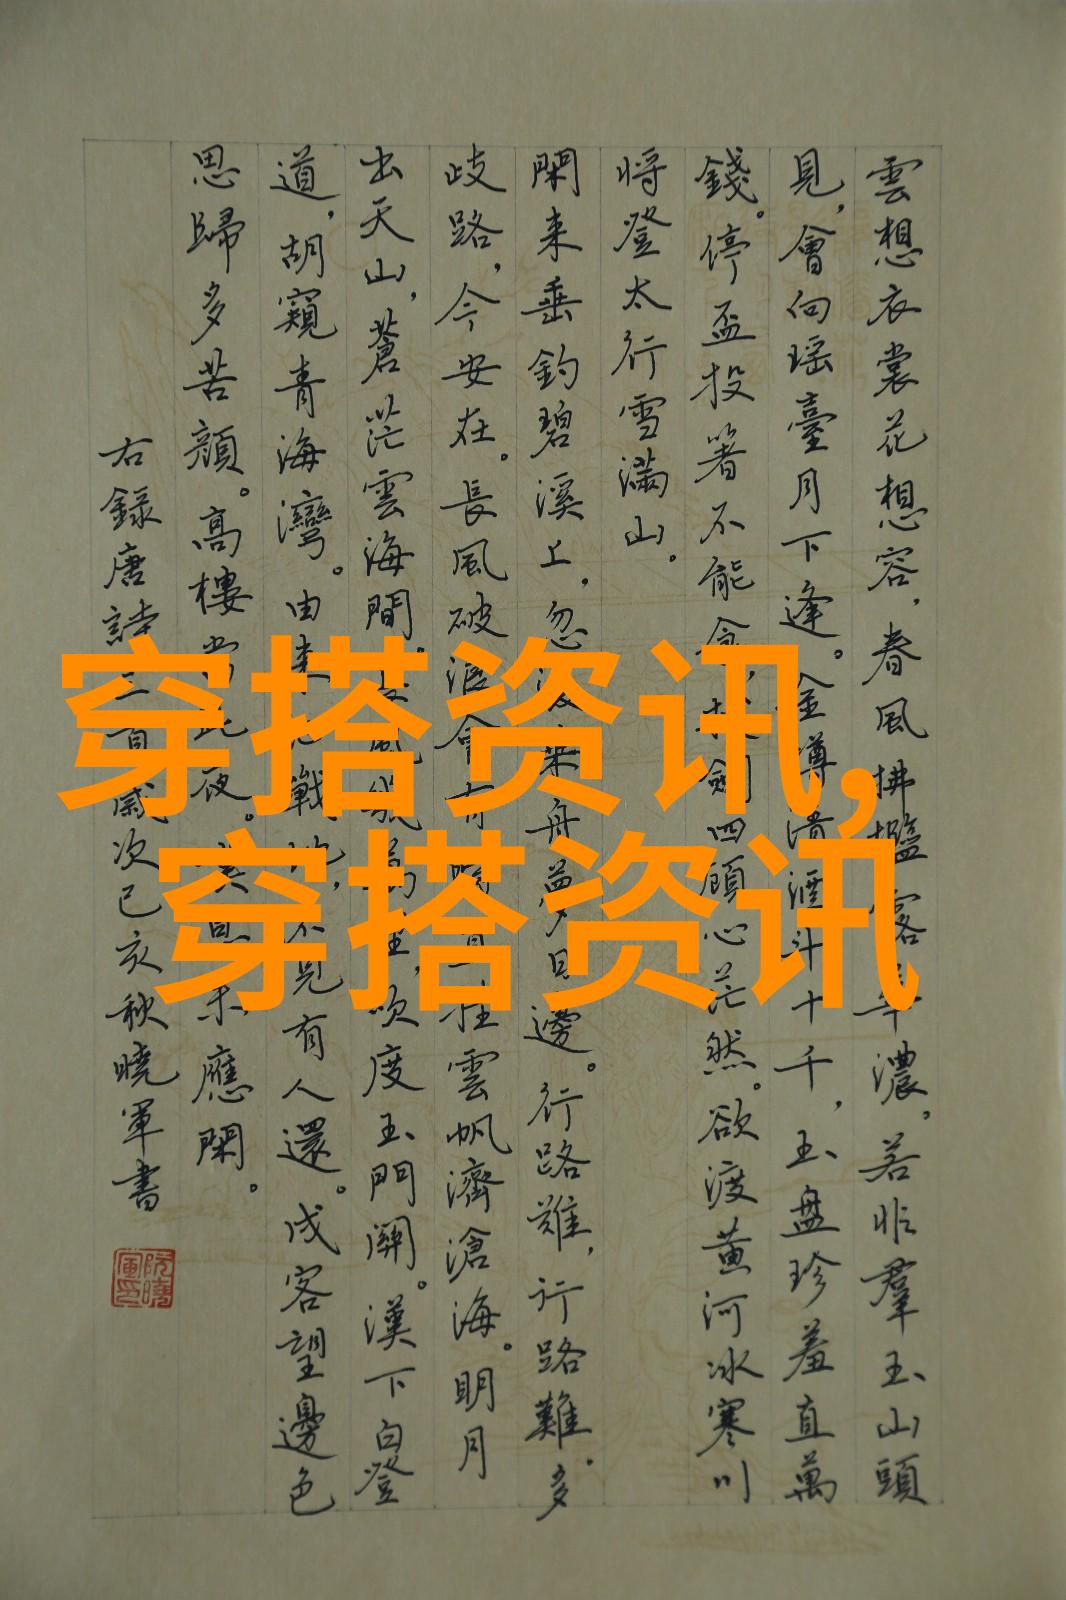 雲想衣裳花想容，春風拂檻露濃。若非羣玉山頭
見，會向瑶臺月下逢。金樽清酒斗十千，玉盤珍羞直萬
錢。停盃投箸不能食，劍四顧心茫然。欲渡黄河冰寒川
将登太行雪滿山。
閑来垂釣碧溪上，忽舟夢日邊。行路難，行路難。多
歧路，今安在。長風破浪會有雲帆濟滄海。明月
出天山，蒼茫雲海間。風吹度玉門關。漢下白登
道，胡窺青海灣。由来戰，見有人還。戍客望邊色
思歸多苦顔。高樓當此夜。息未應閑。
右録唐詩三首歲次己亥秋曉軍書
阮曉軍印
穿搭资讯,
穿搭资讯